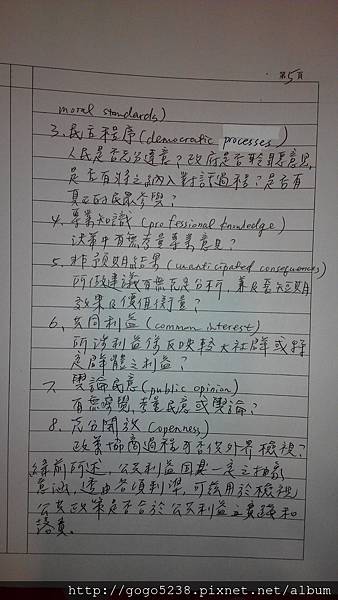 第5頁
moral standards)
3、民主程序(democratic processes)
人民是否充分達意?政府是否聆聽意見,
是否有將之納入審討過程?是否有
真正的民眾參與?
4、專業知識(professional knowledge)
決策中有無考量專業意見?
5、非預期結果(unanticipated consequences)
所做建議有無充足分析,兼及長短期
效果及價值衡量?
6、公同利益(common interest)
所涉利益係反映較大社群或特
定群體之利益?
7、輿論民意(public opinion)
有無察覺,考量民意或輿論?
8、充分開放(openness)
政策協商過程可否供外界檢視?
綜前所述,公共利益固具一定之抽象
意涵,透由各項判準,可茲用於檢視
公共政策是否合於公共利益之實踐和
落實。
http://gogo5238.pixnet.net/album